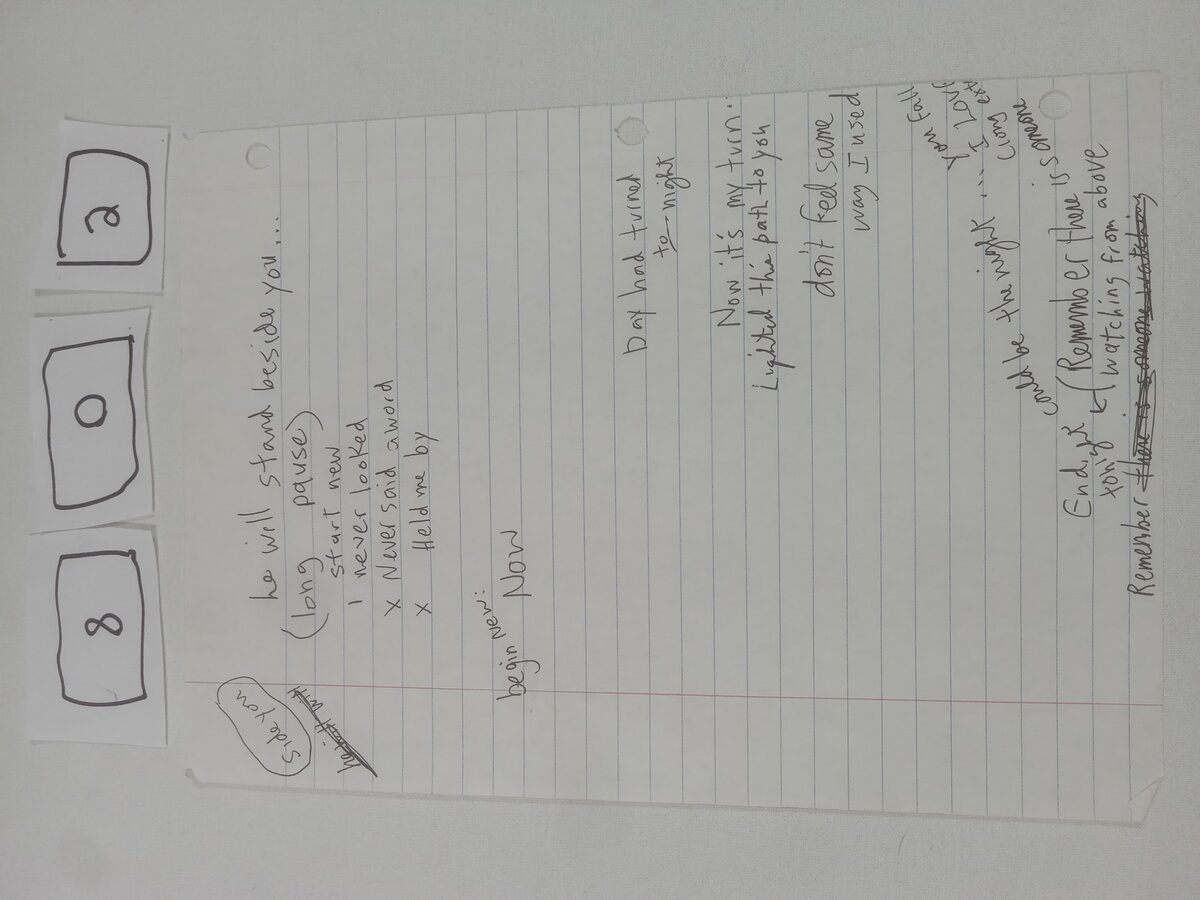 8 0 2
he will stand beside you....
side you
(long pause)
start new
I never looked
x Never said a word
x Held me by
begin New:
Now
Day had turned
to night
Now it's my turn..
Lighted this path to you
don't feel same
way I used
you fall
could be the night .... I Love
long ext
End, (Remember there is someone
tonight watching from above
Remember there is someone watching